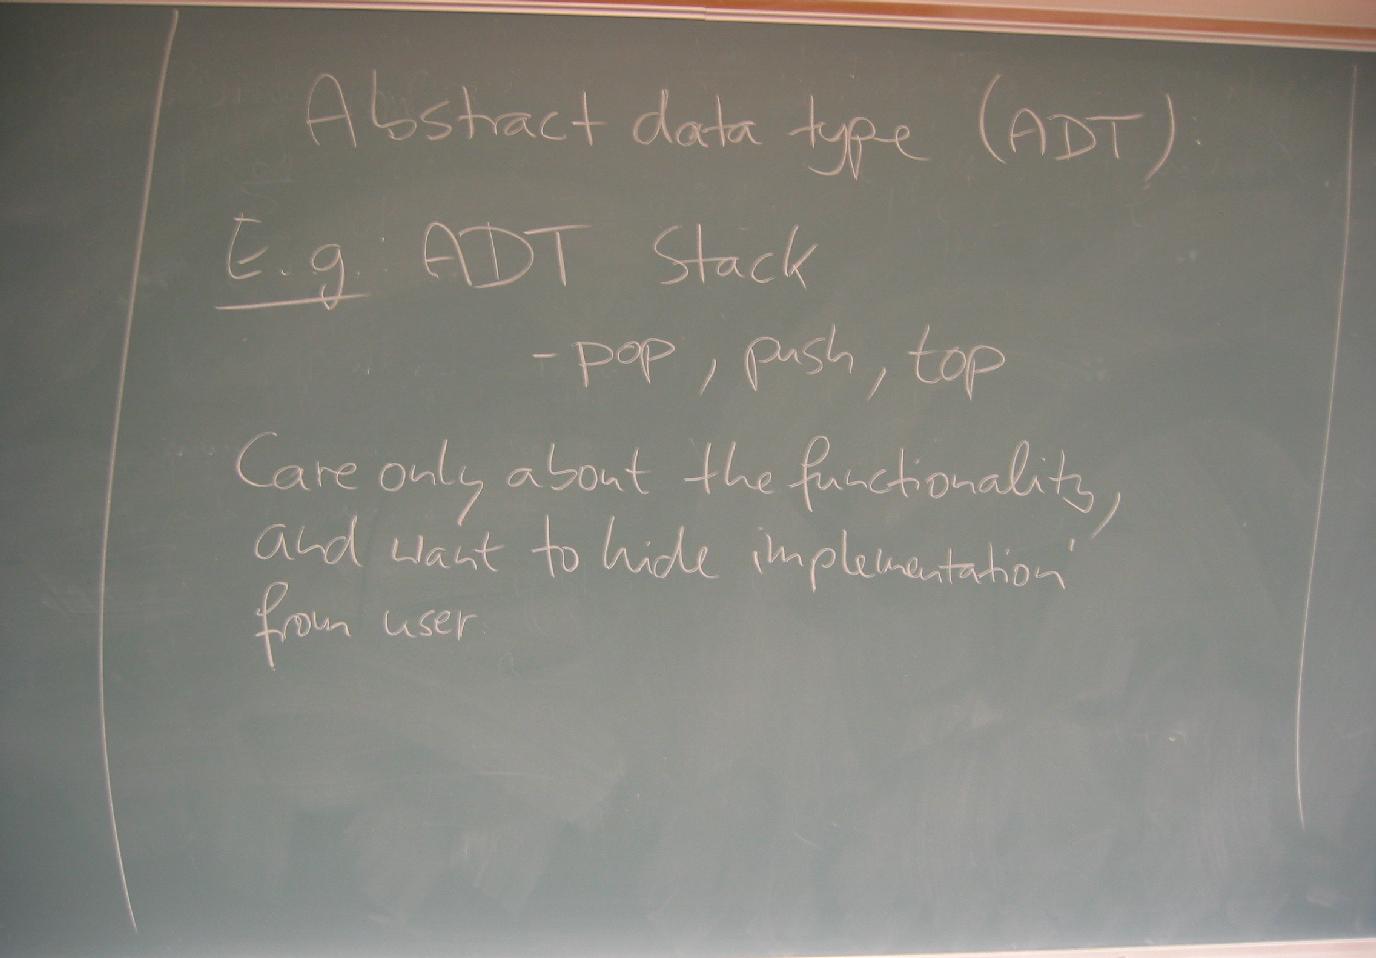 Abstract data type (ADT):
E.g. ADT Stack
- pop, push, top
Care only about the functionality,
and want to hide implementation
from user